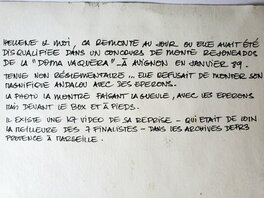 HELLENE ET MOI, CA REMONTE AU JOUR OU ELLE AVAIT ÉTÉ
DISQUALIFIEE DANS UN CONCOURS DE MONTE REJONEADOR
DE LA "DOMA VAQUERA" - À AVIGNON EN JANVIER 89.
TENUE NON RÉGLEMENTAIRE... ELLE REFUSAIT DE MONTER SON
MAGNIFIQUE ANDALOU AVEC DES EPERONS.
LA PHOTO LA MONTRE FAISANT LA GUEULE, AVEC LES EPERONS
MAIS DEVANT LE BOX ET À PIEDS.
IL EXISTE UNE K7 VIDEO DE SA REPRISE - QUI ETAIT DE LOIN
LA MEILLEURE DES 7 FINALISTES - DANS LES ARCHIVES DE FR3
PROVENCE À MARSEILLE.